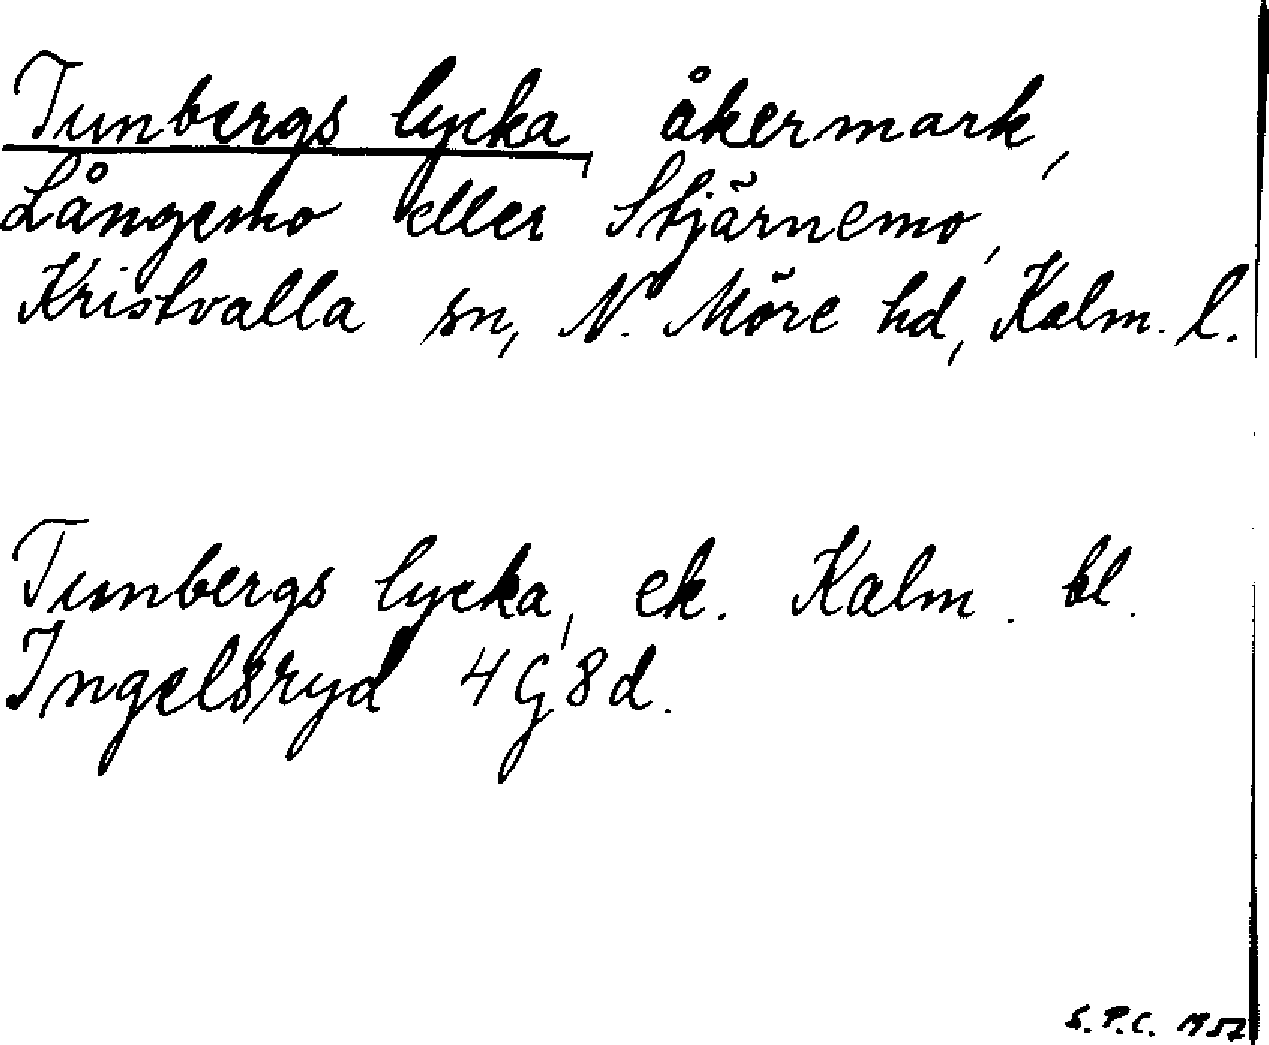 Tunbergs lycka, åkermark,
Långemo eller Stjärnemo,
Kristvalla sn, N. Möre hd, Kalm. l.
Tunbergs lycka, ek. Kalm. bl.
Ingelsryd 4G8d.
S.P.C. 1957